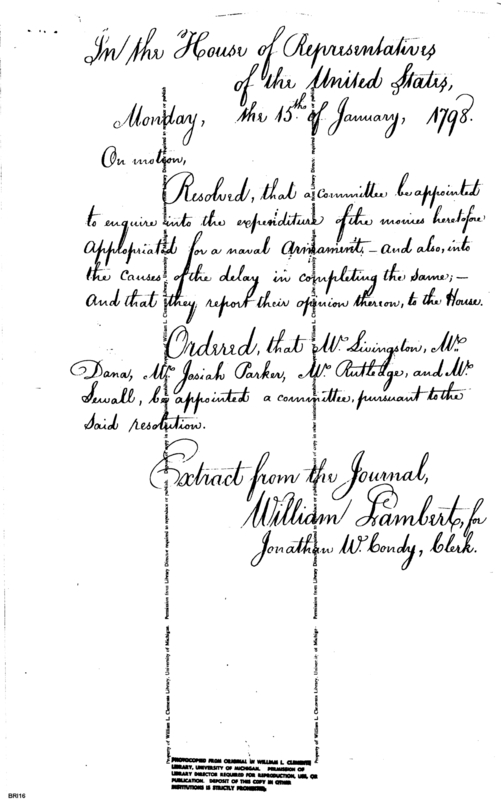 In the House of Representatives
of the United States,
Monday, the 15th of January, 1798.
On motion,
Resolved, that a committee be appointed
to enquire into the expenditure of the monies heretofore
appropriated for a naval armament, – and also, into
the causes of the delay in completing the same; –
And that they report their opinion thereon, to the House.
Ordered, that Mr. Livingston, Mr.
Dana, Mr. Josiah Parker, Mr. Rutledge, and Mr.
Sewall, be appointed a committee, pursuant to the
said resolution.
Extract from the Journal,
William Lambert, for
Jonathan W. Condy, Clerk.
Property of William L. Clements Library, University of Michigan. Permission from Library Director required to reproduce or publish.
Property of William L. Clements Library, University of Michigan. Permission from Library Director required to reproduce or publish.
PHOTOCOPIED FROM ORIGINAL IN WILLIAM L. CLEMENTS
LIBRARY, UNIVERSITY OF MICHIGAN. PERMISSION OF
LIBRARY DIRECTOR REQUIRED FOR REPRODUCTION, USE, OR
PUBLICATION. DEPOSIT OF THIS COPY IN OTHER
INSTITUTIONS IS STRICTLY PROHIBITED.
BRI16